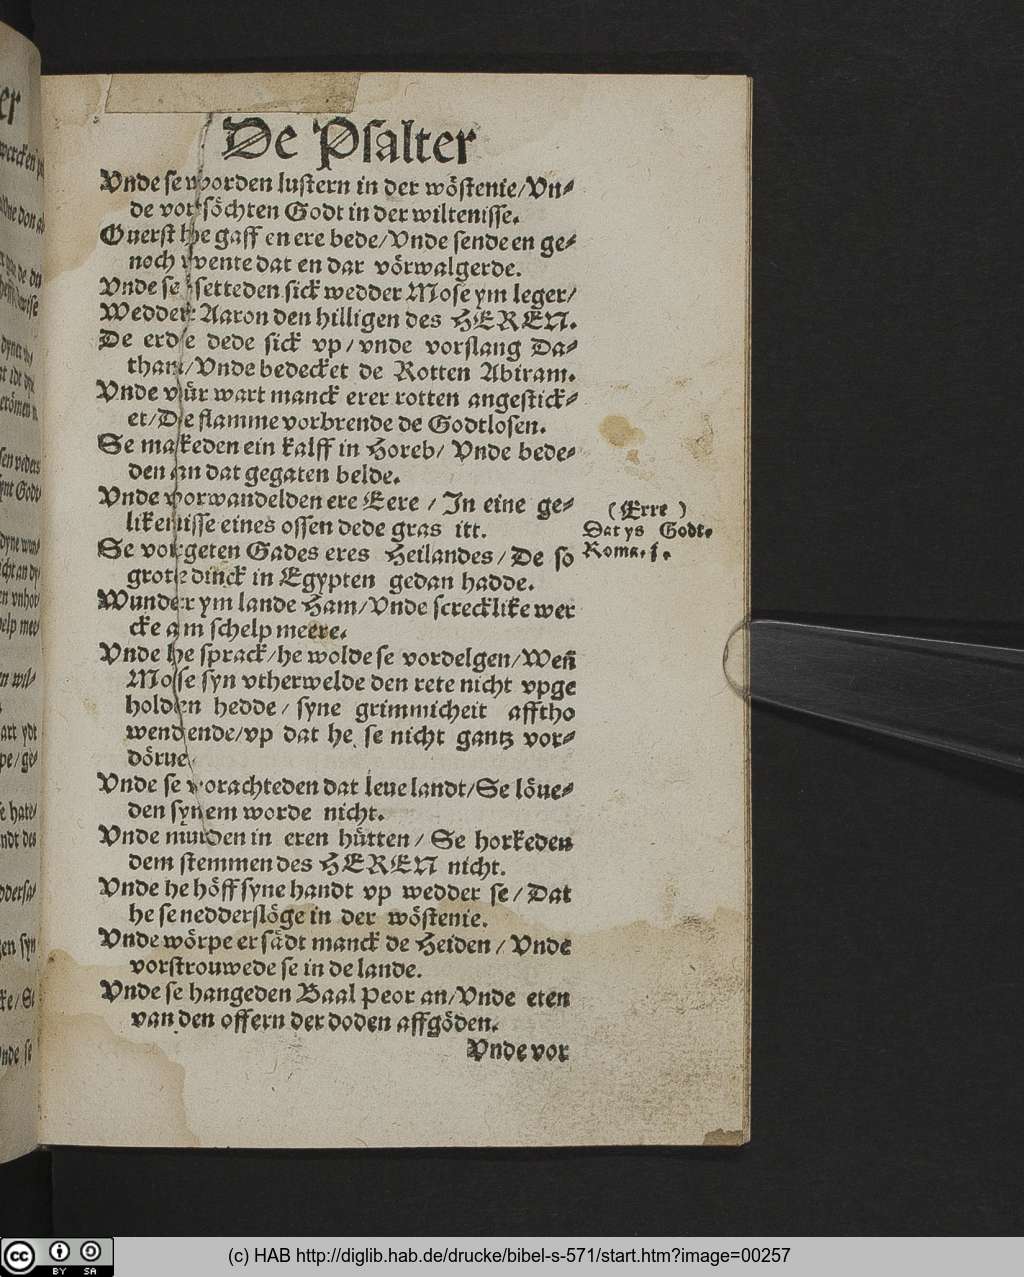 De Psalter
Vnde se worden lustern in der wöstenie/Vn⸗
de vorsöchten Godt in der wiltenisse.
Ouerst he gaff en ere bede/Vnde sende en ge⸗
noch wente dat en dar vörwalgerde.
Vnde se setteden sick wedder Mose ym leger/
Wedder Aaron den hilligen des HEREN.
De erde dede sick vp/vnde vorslang Da⸗
than/Vnde bedecket de Rotten Abiram.
Vnde vür wart manck erer rotten angestick⸗
et/De flamme vorbrende de Godtlosen.
Se makeden ein kalff in Horeb/ Vnde bede⸗
den an dat gegaten belde.
Vnde vorwandelden ere Eere / In eine ge⸗
likenisse eines ossen dede gras itt.
Se vorgeten Gades eres Heilandes/De so
grote dinck in Egypten gedan hadde.
Wunder ym lande Ham/Vnde screcklike wer
cke am schelp meere.
Vnde he sprack/he wolde se vordelgen/Weñ
Mose syn vtherwelde den rete nicht vpge
holden hedde/ syne grimmicheit afftho
wendende/vp dat he se nicht gantz vor⸗
dörue.
Vnde se vorachteden dat leue landt/Se löue⸗
den synem worde nicht.
Vnde murden in eren hütten/ Se horkeden
dem stemmen des HEREN nicht.
Vnde he höff syne handt vp wedder se/Dat
he se nedderslöge in der wöstenie.
Vnde wörpe er sädt manck de Heiden/ Vnde
vorstrouwede se in de lande.
Vnde se hangeden Baal Peor an/Vnde eten
van den offern der doden affgöden.
Vnde vor
(Erre )
Dat ys Godt.
Roma. j.
(c) HAB http://diglib.hab.de/drucke/bibel-s-571/start.htm?image=00257
cc BY SA